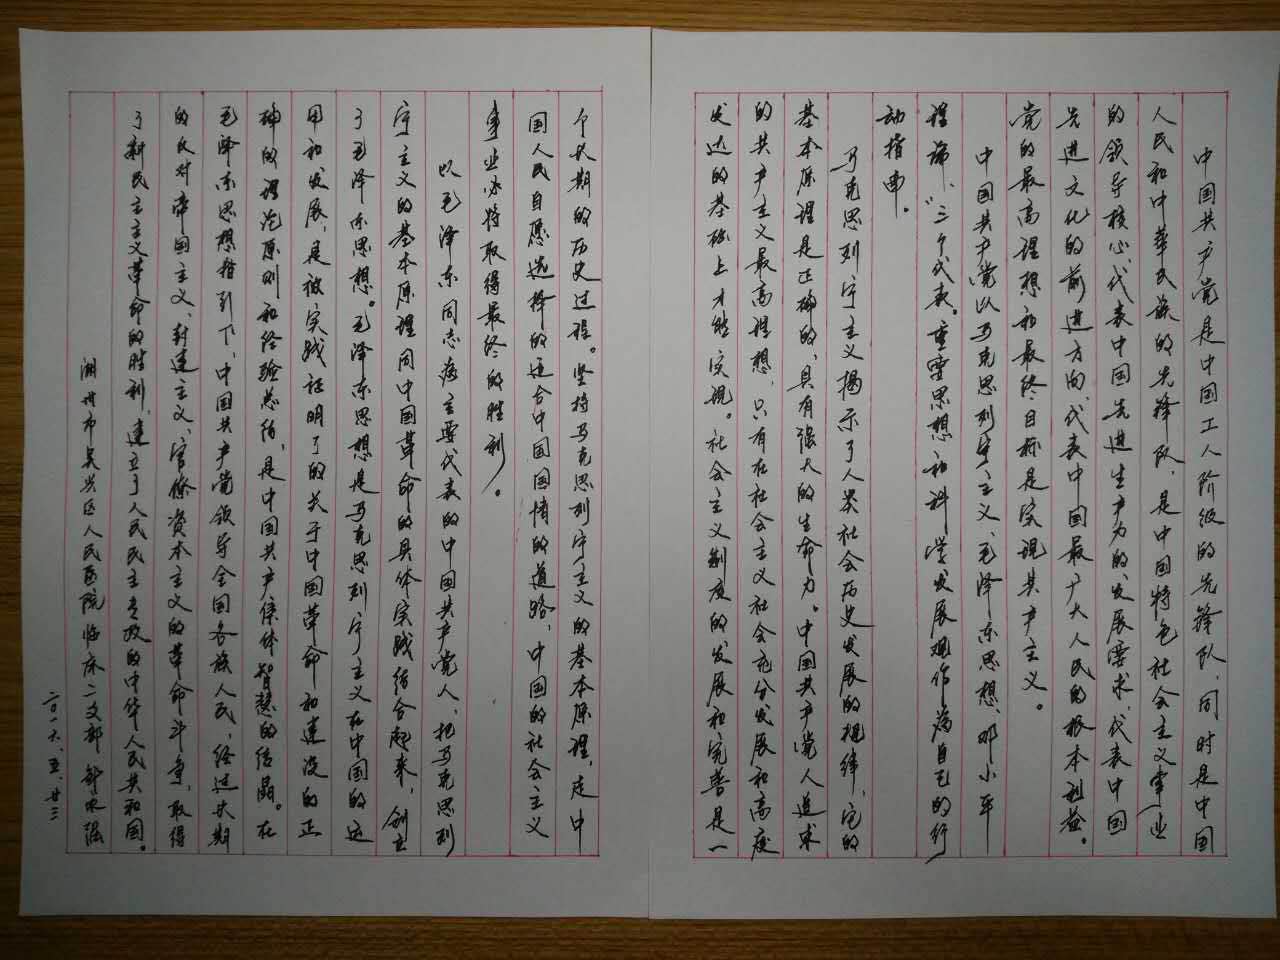 中国共产党是中国工人阶级的先锋队,同时是中国
人民和中华民族的先锋队,是中国特色社会主义事业
的领导核心,代表中国先进生产力的发展要求,代表中国
先进文化的前进方向,代表中国最广大人民的根本利益。
党的最高理想和最终目标是实现共产主义。
中国共产党以马克思列宁主义、毛泽东思想、邓小平
理论、“三个代表”重要思想和科学发展观作为自己的行
动指南。
马克思列宁主义揭示了人类社会历史发展的规律,它的
基本原理是正确的,具有强大的生命力。中国共产党人追求
的共产主义最高理想,只有在社会主义社会充分发展和高度
发达的基础上才能实现。社会主义制度的发展和完善是一
个长期的历史过程。坚持马克思列宁主义的基本原理,走中
国人民自愿选择的适合中国国情的道路,中国的社会主义
事业必将取得最终的胜利。
以毛泽东同志为主要代表的中国共产党人,把马克思列
宁主义的基本原理同中国革命的具体实践结合起来,创立
了毛泽东思想。毛泽东思想是马克思列宁主义在中国的运
用和发展,是被实践证明了的关于中国革命和建设的正
确的理论原则和经验总结,是中国共产党集体智慧的结晶。在
毛泽东思想指引下,中国共产党领导全国各族人民,经过长期
的反对帝国主义、封建主义、官僚资本主义的革命斗争,取得
了新民主主义革命的胜利,建立了人民民主专政的中华人民共和国。
湖州市吴兴区人民医院临床二支部
二〇一六、五、廿三